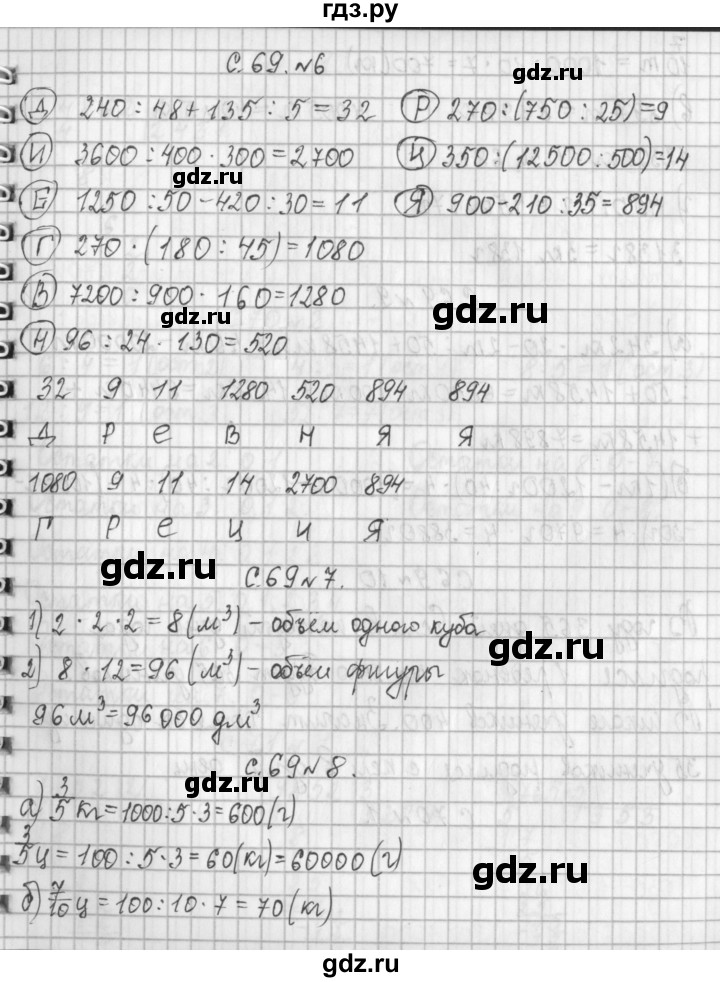 гдз.ру
С. 69. №6
Д 240 : 48 + 135 : 5 = 32 Р 270 : (750 : 25) = 9
И 3600 : 400 · 300 = 2700 Ц 350 : (12500 : 500) = 14
gdz.ru
Е 1250 : 50 - 420 : 30 = 11 Я 900 - 210 : 35 = 894
Г 270 · (180 : 45) = 1080
В 7200 : 900 · 160 = 1280
gdz.ru gdz.ru
Н 96 : 24 · 130 = 520
32 9 11 1280 520 894 894
Д Р Е В Н Я Я
1080 9 11 14 2700 894
Г Р Е Ц И Я
gdz.ru gdz.ru
С. 69 №7.
1) 2 · 2 · 2 = 8 (м³) - объем одного куба
gdz.ru
2) 8 · 12 = 96 (м³) - объем фигуры
96 м³ = 96 000 дм³
С. 69 №8.
gdz.ru
а) 3/5 кг = 1000 : 5 · 3 = 600 (г)
3/5 ц = 100 : 5 · 3 = 60 (кг) = 60000 (г)
gdz.ru
б) 7/10 ц = 100 : 10 · 7 = 70 (кг)
gdz.ru
gdz.ru